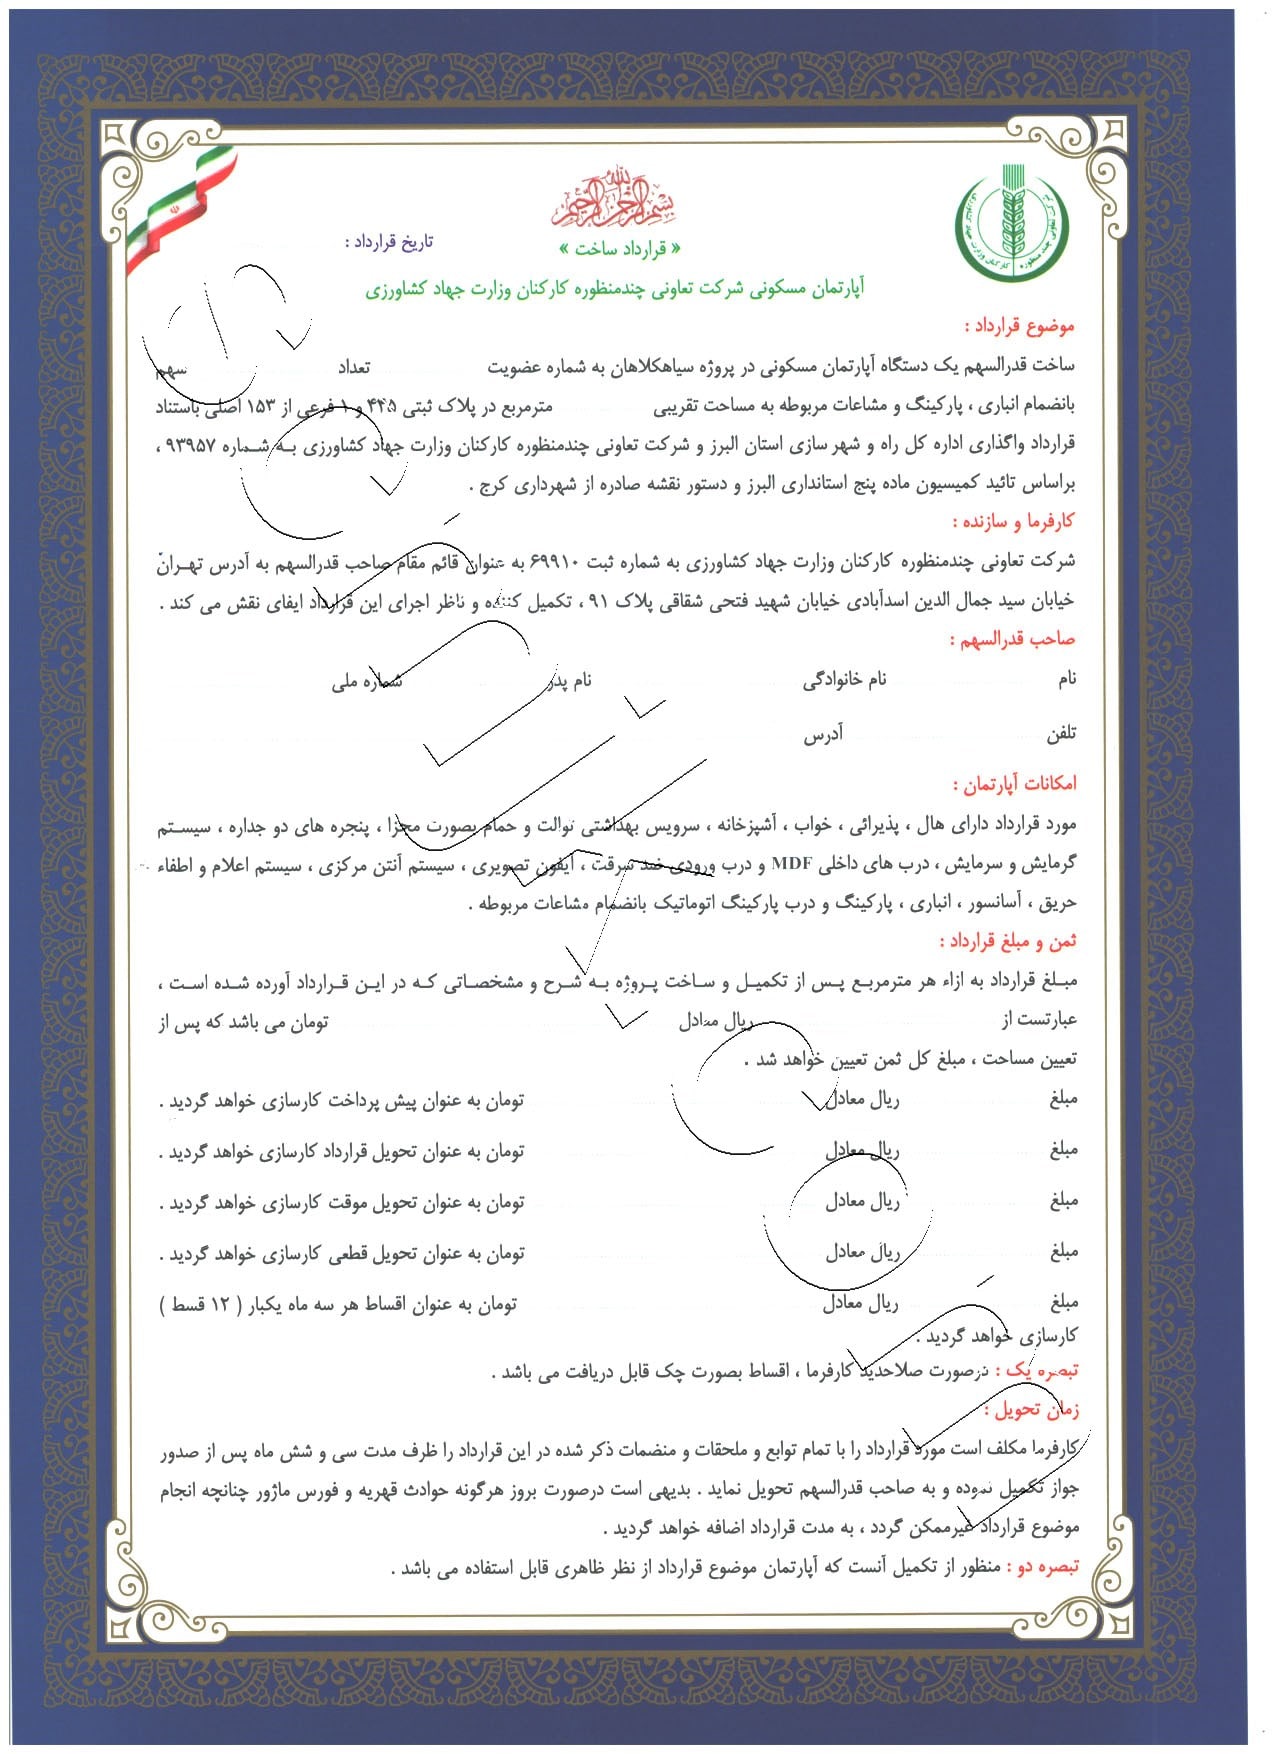 بسم الله الرحمن الرحیم
« قرارداد ساخت »
تاریخ قرارداد :
آپارتمان مسکونی شرکت تعاونی چندمنظوره کارکنان وزارت جهاد کشاورزی
موضوع قرارداد :
ساخت قدرالسهم یک دستگاه آپارتمان مسکونی در پروژه سیاهکلاهان به شماره عضویت تعداد سهم
بانضمام انباری ، پارکینگ و مشاعات مربوطه به مساحت تقریبی مترمربع در پلاک ثبتی ۴۴۵ و ۱ فرعی از ۱۵۳ اصلی باستناد
قرارداد واگذاری اداره کل راه و شهر سازی استان البرز و شرکت تعاونی چندمنظوره کارکنان وزارت جهاد کشاورزی به شماره ۹۳۹۵۷ ،
براساس تائید کمیسیون ماده پنج استانداری البرز و دستور نقشه صادره از شهرداری کرج .
کارفرما و سازنده :
شرکت تعاونی چندمنظوره کارکنان وزارت جهاد کشاورزی به شماره ثبت ۶۹۹۱۰ به عنوان قائم مقام صاحب قدرالسهم به آدرس تهران
خیابان سید جمال الدین اسدآبادی خیابان شهید فتحی شقاقی پلاک ۹۱ ، تکمیل کننده و ناظر اجرای این قرارداد ایفای نقش می کند .
صاحب قدرالسهم :
نام نام خانوادگی نام پدر شماره ملی
تلفن آدرس
امکانات آپارتمان :
مورد قرارداد دارای هال ، پذیرائی ، خواب ، آشپزخانه ، سرویس بهداشتی توالت و حمام بصورت مجزا ، پنجره های دو جداره ، سیستم
گرمایش و سرمایش ، درب های داخلی MDF و درب ورودی ضد سرقت ، آیفون تصویری ، سیستم آنتن مرکزی ، سیستم اعلام و اطفاء
حریق ، آسانسور ، انباری ، پارکینگ و درب پارکینگ اتوماتیک بانضمام مشاعات مربوطه .
ثمن و مبلغ قرارداد :
مبلغ قرارداد به ازاء هر مترمربع پس از تکمیل و ساخت پروژه به شرح و مشخصاتی که در این قرارداد آورده شده است ،
عبارتست از ریال معادل تومان می باشد که پس از
تعیین مساحت ، مبلغ کل ثمن تعیین خواهد شد .
مبلغ ریال معادل تومان به عنوان پیش پرداخت کارسازی خواهد گردید .
مبلغ ریال معادل تومان به عنوان تحویل قرارداد کارسازی خواهد گردید .
مبلغ ریال معادل تومان به عنوان تحویل موقت کارسازی خواهد گردید .
مبلغ ریال معادل تومان به عنوان تحویل قطعی کارسازی خواهد گردید .
مبلغ ریال معادل تومان به عنوان اقساط هر سه ماه یکبار ( ۱۲ قسط )
کارسازی خواهد گردید .
تبصره یک : درصورت صلاحدید کارفرما ، اقساط بصورت چک قابل دریافت می باشد .
زمان تحویل :
کارفرما مکلف است مورد قرارداد را با تمام توابع و ملحقات و منضمات ذکر شده در این قرارداد را ظرف مدت سی و شش ماه پس از صدور
جواز تکمیل نموده و به صاحب قدرالسهم تحویل نماید . بدیهی است درصورت بروز هرگونه حوادث قهریه و فورس ماژور چنانچه انجام
موضوع قرارداد غیرممکن گردد ، به مدت قرارداد اضافه خواهد گردید .
تبصره دو : منظور از تکمیل آنست که آپارتمان موضوع قرارداد از نظر ظاهری قابل استفاده می باشد .